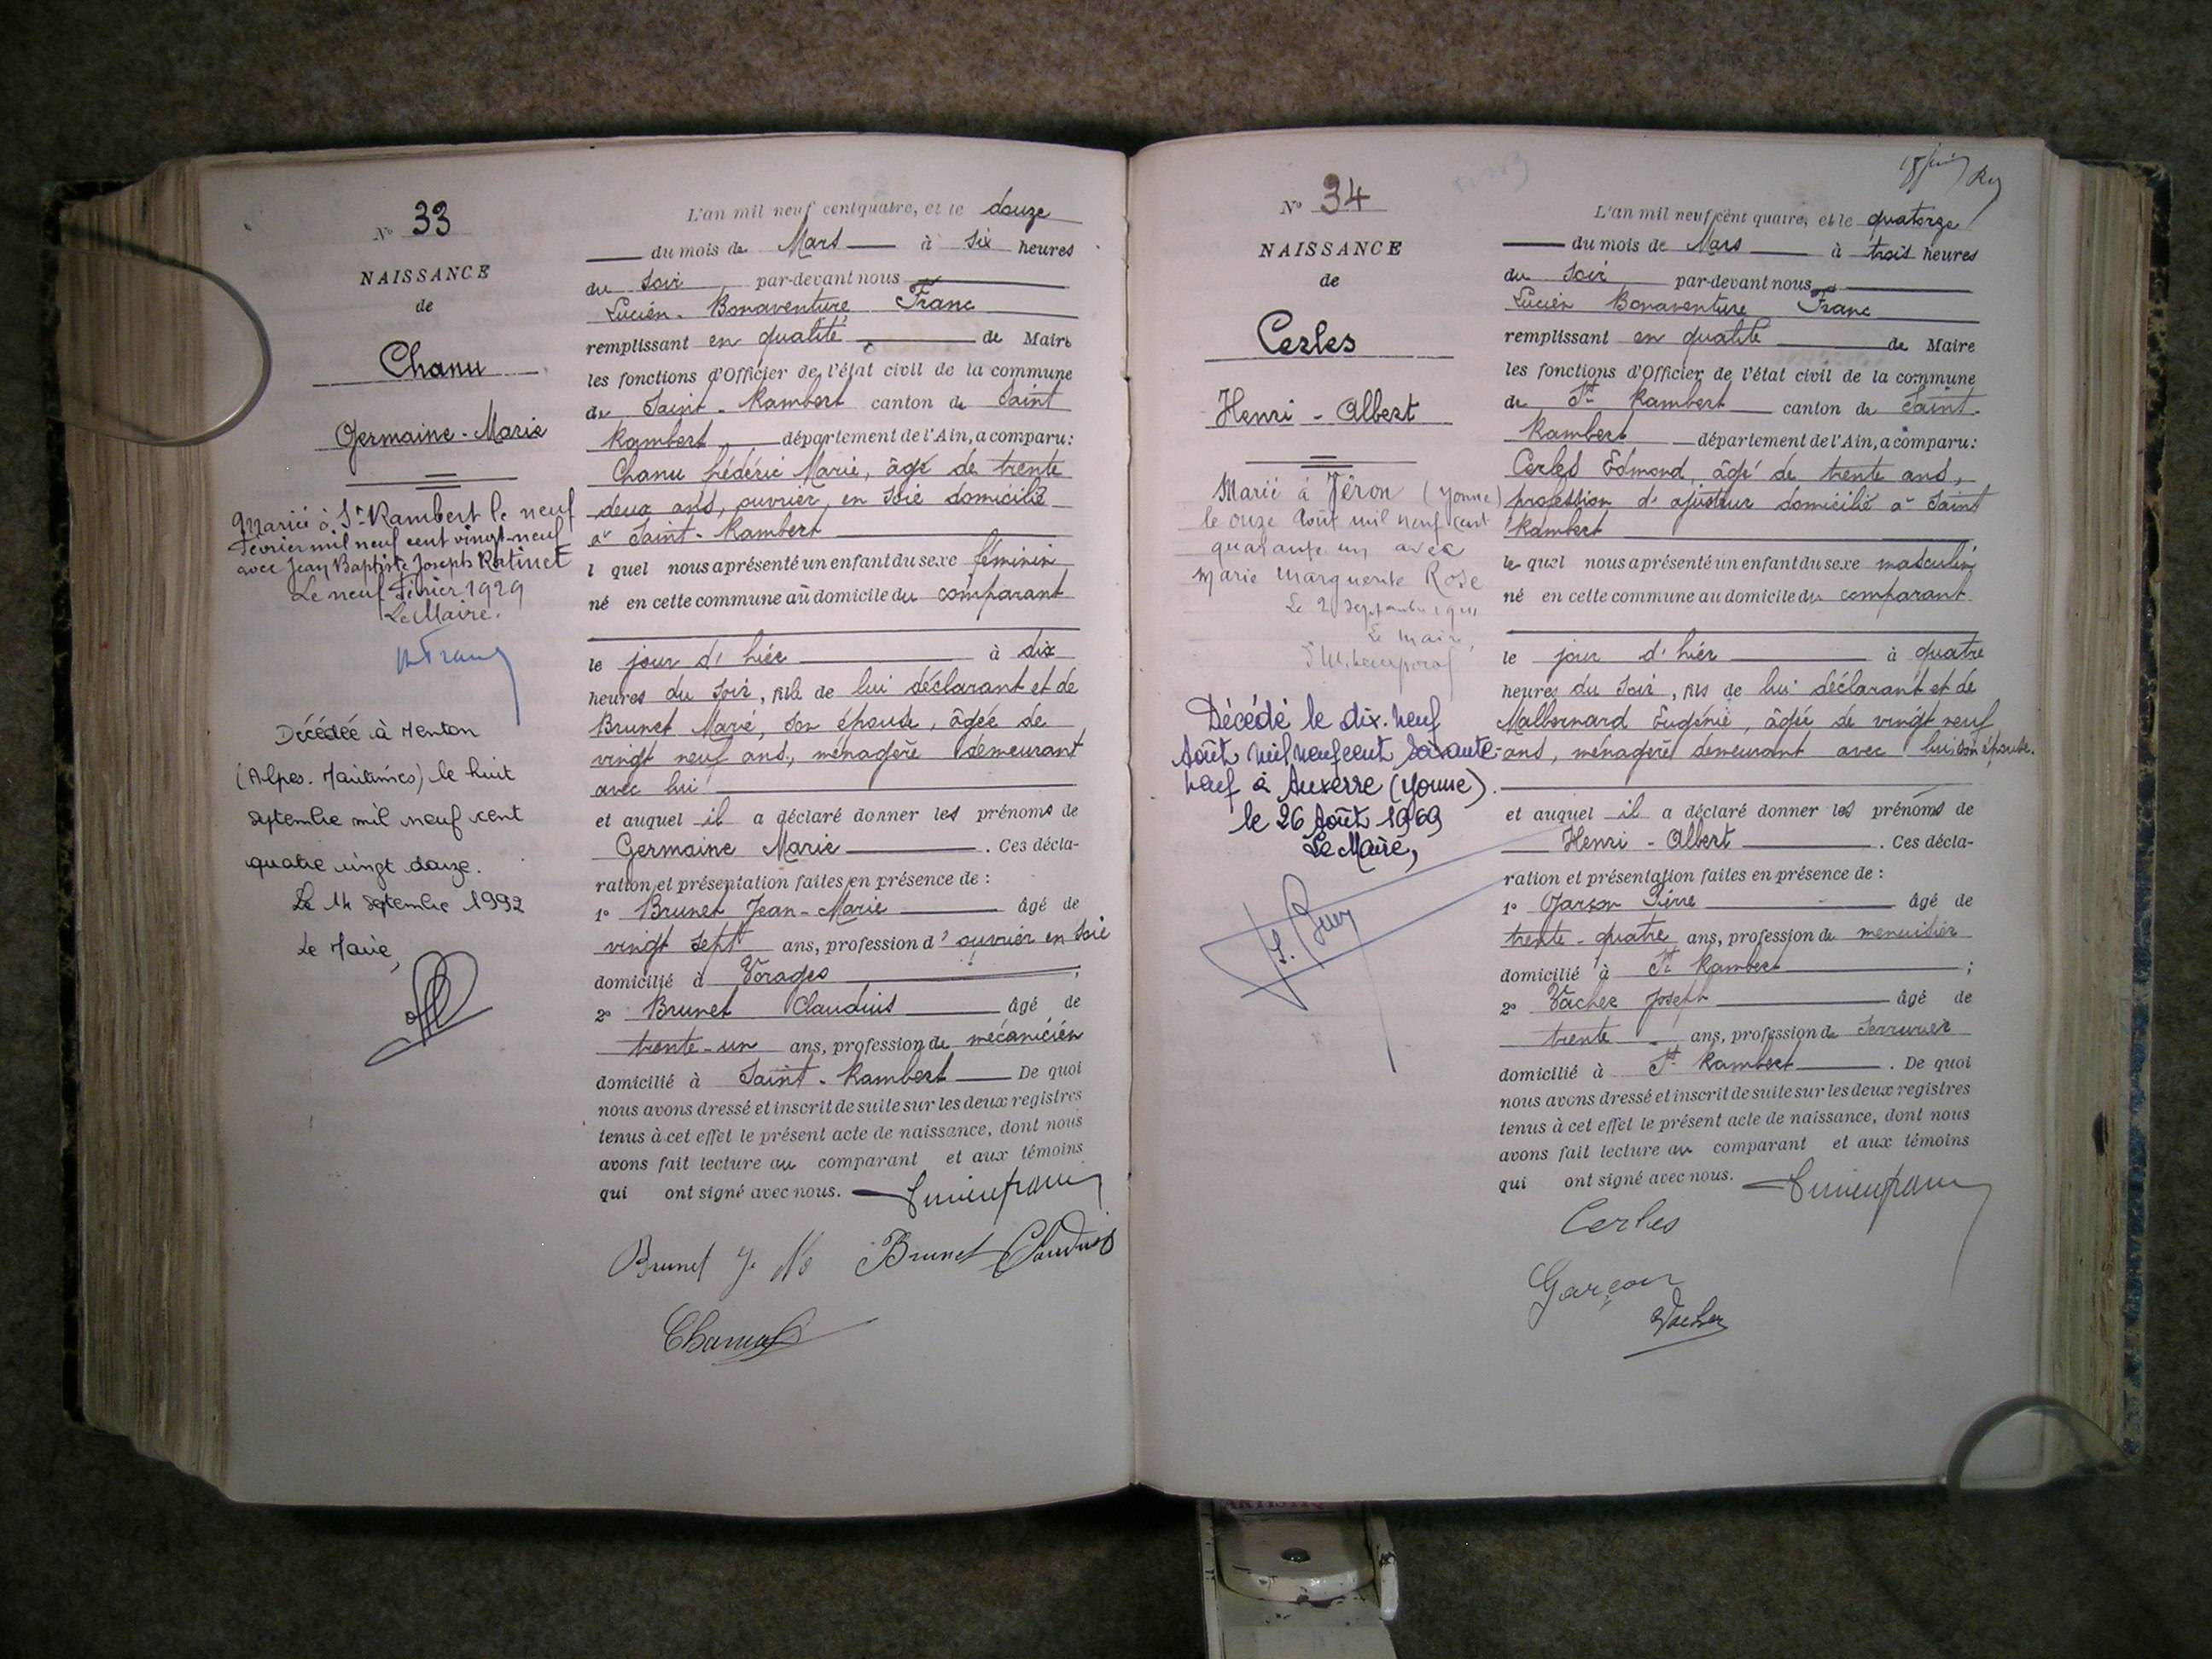 N° 33
NAISSANCE
de
Chanu
Germaine - Marie
Mariée à St Rambert le neuf
Fevrier mil neuf cent vingt-neuf
avec Jean Baptiste Joseph Ratinet
Le neuf Février 1929
Le Maire.
Décédée à Menton
(Alpes. Maritimes) le huit
septembre mil neuf cent
quatre vingt douze.
Le 14 septembre 1992
Le Maire,
L'an mil neuf cent quatre, et le douze
du mois de Mars à six heures
du soir, par-devant nous
Lucien - Bonaventure Franc
remplissant en qualité de Maire
les fonctions d'Officier de l'état civil de la commune
de Saint - Rambert canton de Saint
Rambert, département de l'Ain, a comparu:
Chanu Frédéric Marie, âgé de trente
deux ans, ouvrier en soie domicilié
à Saint - Rambert
l quel nous a présenté un enfant du sexe féminin
né en cette commune au domicile du comparant
le jour d'hier à dix
heures du soir, fille de lui déclarant et de
Brunet Marie, son épouse, âgée de
vingt neuf ans, ménagère demeurant
avec lui
et auquel il a déclaré donner les prénoms de
Germaine Marie. Ces décla-
ration et présentation faites en présence de :
1° Brunet Jean - Marie âgé de
vingt sept ans, profession d'ouvrier en soie
domicilié à Vorages ;
2° Brunet Claudius âgé de
trente - un ans, profession de mécanicien
domicilié à Saint - Rambert De quoi
nous avons dressé et inscrit de suite sur les deux registres
tenus à cet effet le présent acte de naissance, dont nous
avons fait lecture au comparant et aux témoins
qui ont signé avec nous.
Brunet J. M. Brunet Claudius
Chanu
18 juin
N° 34
NAISSANCE
de
Cerles
Henri - Albert
Marié à Véron (Yonne)
le onze Août mil neuf cent
quarante un avec
Marie Marguerite Rose
Le 2 septembre 1941
Le Maire,
Décédé le dix. neuf
Août mil neuf cent soixante-
neuf à Auxerre (Yonne).
le 26 Août 1969
Le Maire,
L'an mil neuf cent quatre, et le quatorze
du mois de Mars à trois heures
du soir par-devant nous
Lucien Bonaventure Franc
remplissant en qualité de Maire
les fonctions d'Officier de l'état civil de la commune
de St Rambert canton de Saint-
Rambert département de l'Ain, a comparu:
Cerles Edmond, âgé de trente ans,
profession d'ajusteur domicilié à Saint
Rambert
le quel nous a présenté un enfant du sexe masculin
né en cette commune au domicile du comparant
le jour d'hier à quatre
heures du soir, fils de lui déclarant et de
Malbernard Eugénie, âgée de vingt neuf
ans, ménagère demeurant avec lui son épouse.
et auquel il a déclaré donner les prénoms de
Henri - Albert. Ces décla-
ration et présentation faites en présence de :
1° Garçon Pierre âgé de
trente - quatre ans, profession de menuisier
domicilié à St Rambert ;
2° Vacher Joseph âgé de
trente ans, profession de serrurier
domicilié à St Rambert. De quoi
nous avons dressé et inscrit de suite sur les deux registres
tenus à cet effet le présent acte de naissance, dont nous
avons fait lecture au comparant et aux témoins
qui ont signé avec nous.
Cerles
Garçon
Vacher